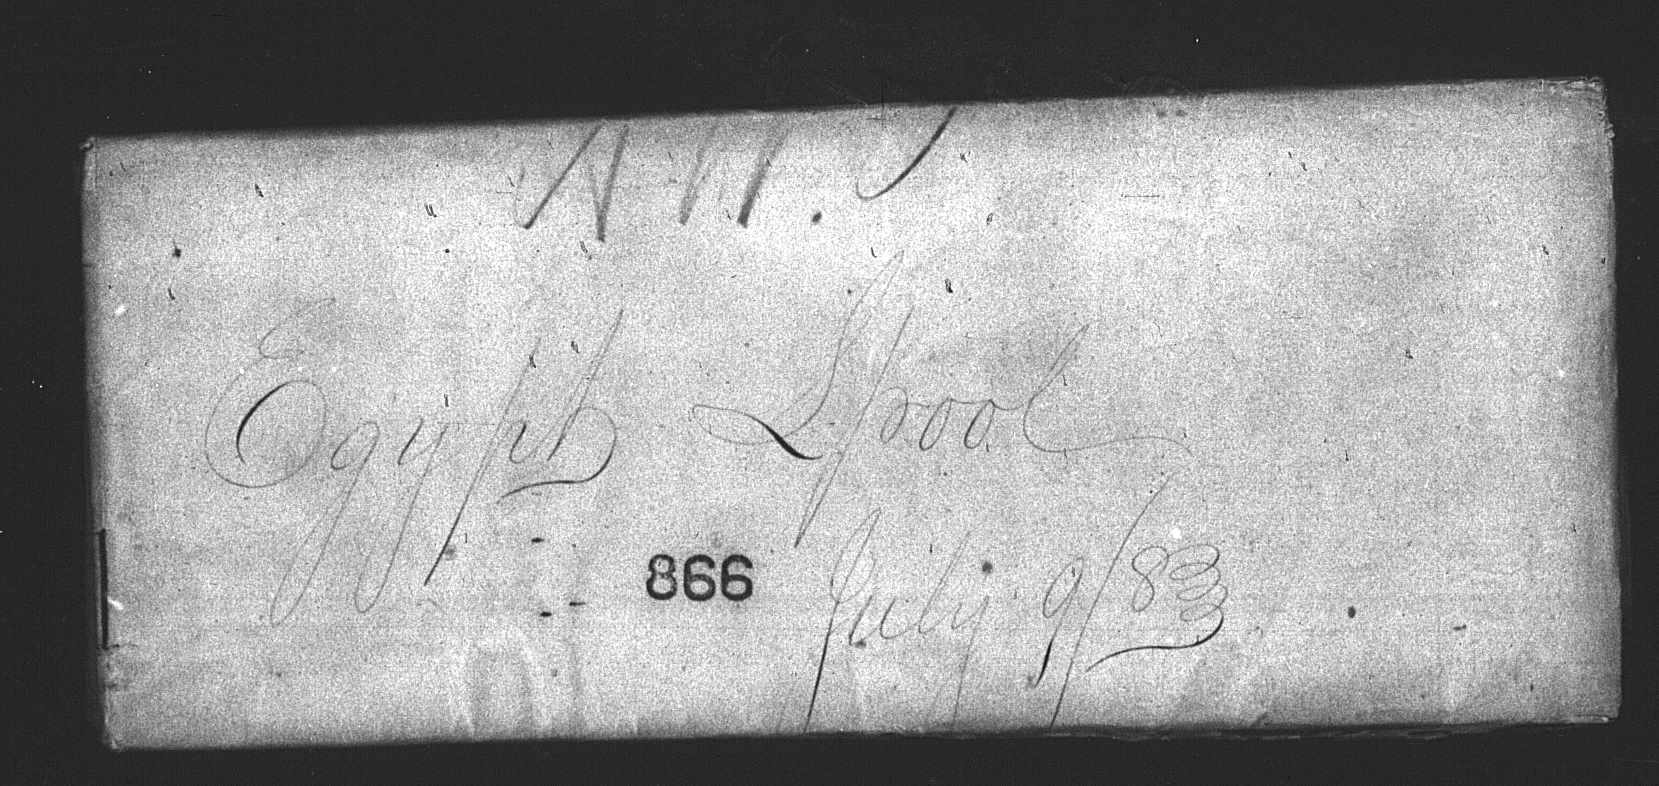 Egypt L'pool
866
July 9/83